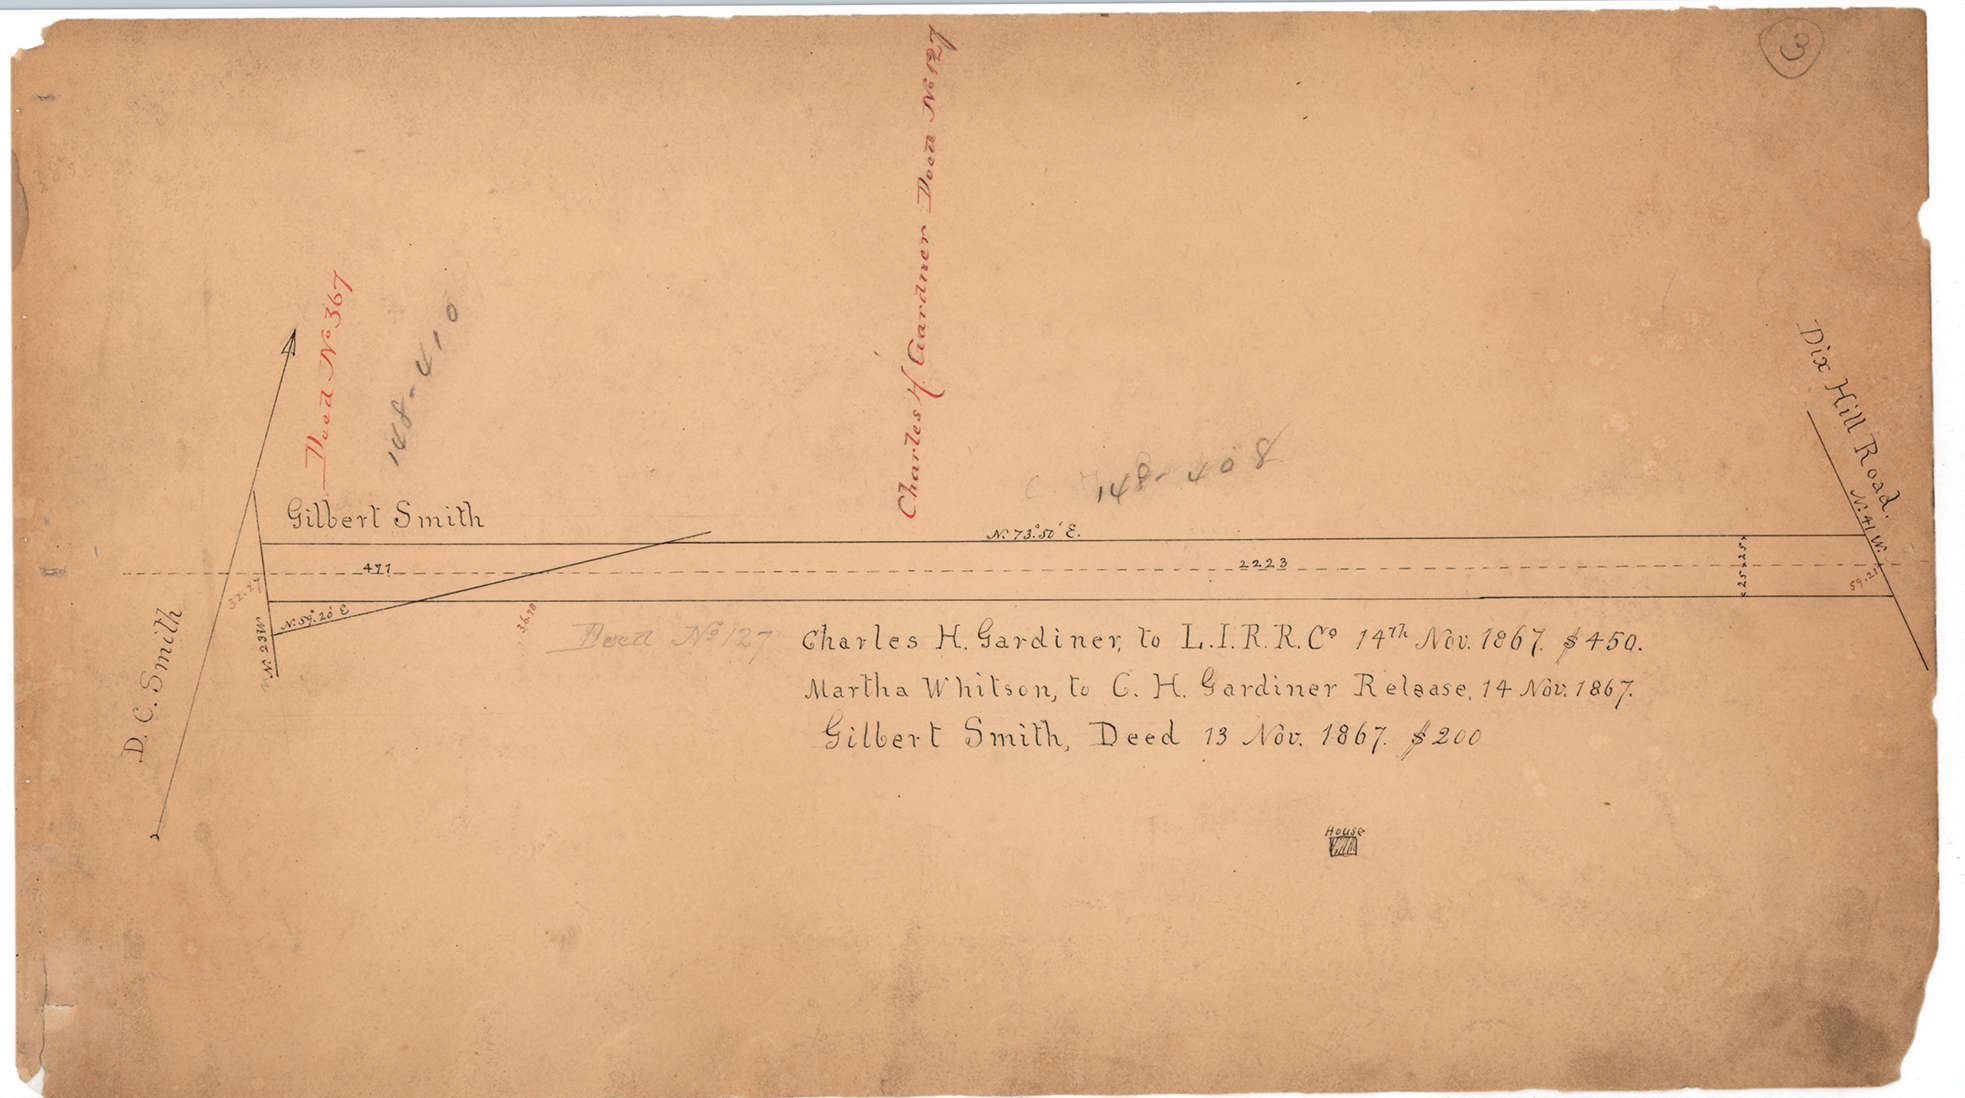 3
Charles H. Gardner Deed No 127
Deed No 367
148-410
Dix Hill Road.
N. 41 W.
148-408
Gilbert Smith
N. 73° 50' E.
477
2223
25.25
32.27
N. 59° 20' E
36.70
N. 23 W
D. C. Smith
Deed No 127
Charles H. Gardiner, to L.I.R.R. Co 14th Nov. 1867. $450.
Martha Whitson, to C. H. Gardiner Release, 14 Nov. 1867.
Gilbert Smith, Deed 13 Nov. 1867. $200
House